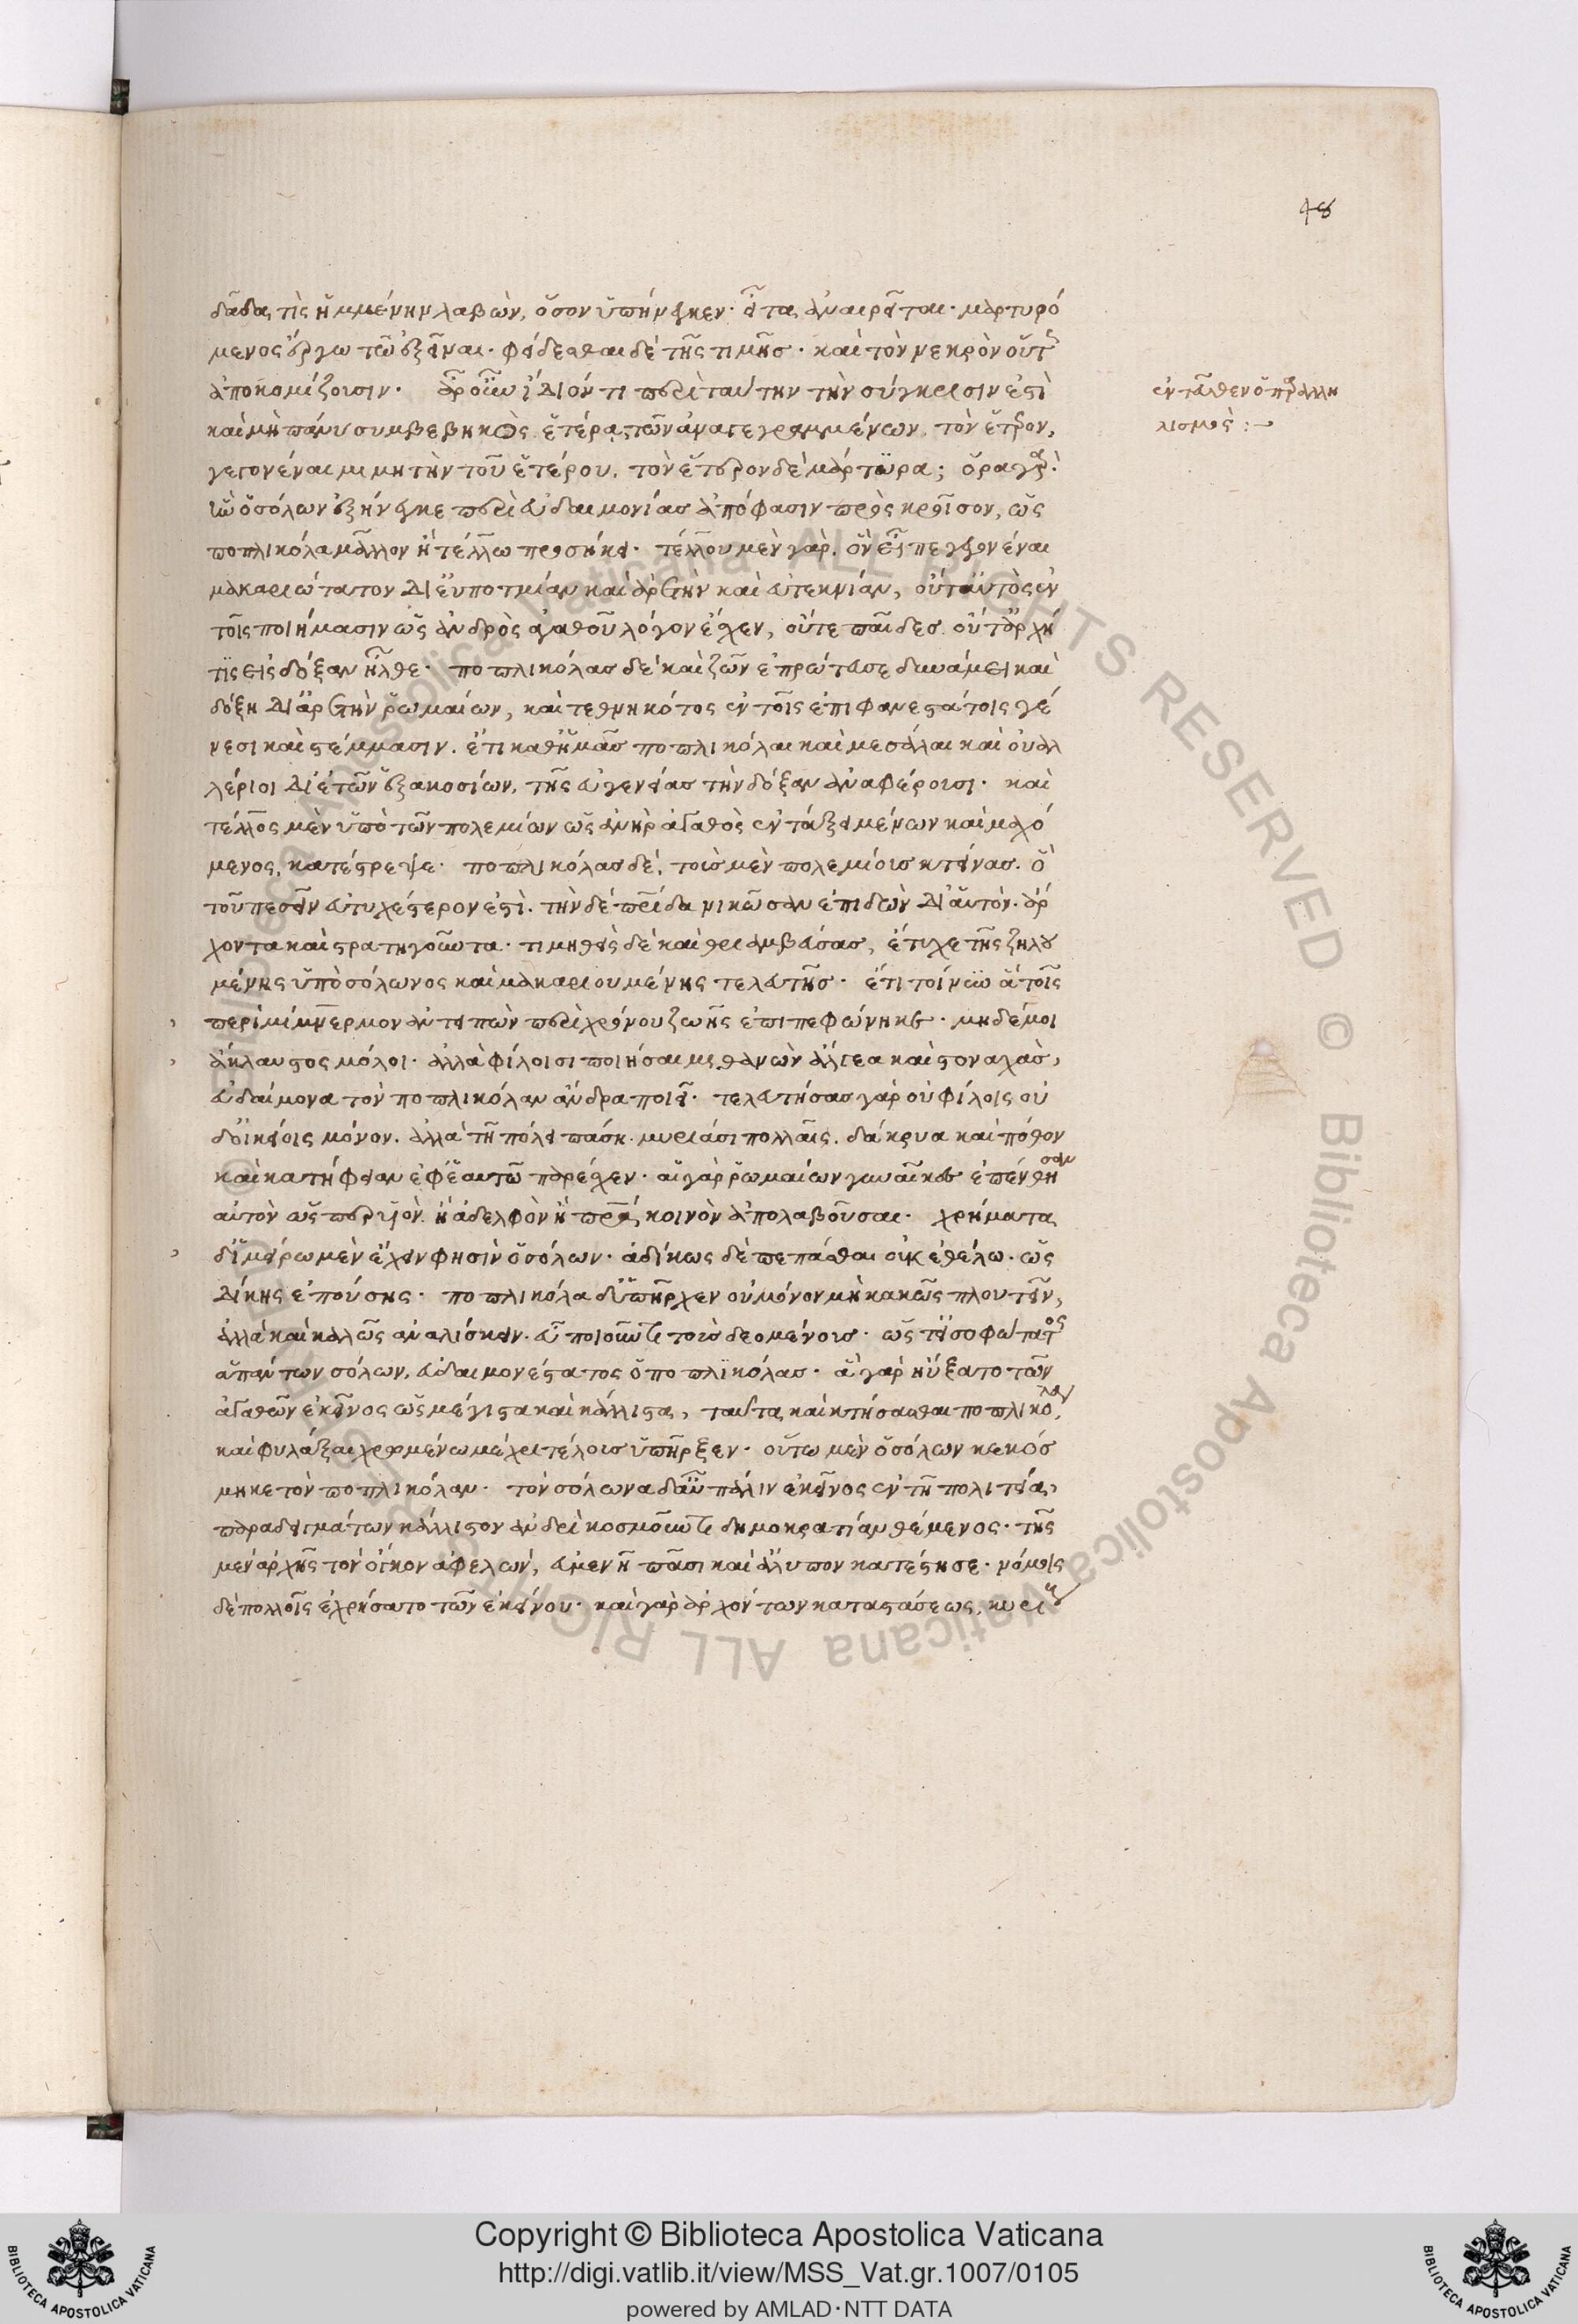 48
δᾷδά τις ἡμμένην λαβὼν, ὅσον ὑπήνεγκεν· εἶτα ἀναιρεῖται· μαρτυρό
μενος ἔργω τῶ ἐξεῖναι· φείδεσθαι δὲ τῆς τιμῆσ· καὶ τὸν νεκρὸν οὕτως
ἀποκομίζουσιν· ἆρ οὖν ἴδιόν τι περὶ ταύτην τὴν σύγκρισιν ἐστὶ
καὶ μὴ πάνυ συμβεβηκὸς ἑτέρα τῶν ἀναγεγραμμένων, τὸν ἕτερον,
γεγονέναι μιμητὴν τοῦ ἑτέρου, τὸν ἕτερον δὲ μάρτυρα; ὅρα γὰρ·
ἣν ὁ σόλων ἐξήνεγκε περὶ εὐδαιμονίας ἀπόφασιν πρὸς κροῖσον, ὡς
ποπλικόλα μᾶλλον ἢ τέλλω προσήκει· τέλλου μὲν γὰρ, ὃν εἶπε γεγονέναι
μακαριώτατον δι εὐποτμίαν καὶ ἀρετὴν καὶ εὐτεκνίαν, οὔτ αὐτὸς ἐν
τοῖς ποιήμασιν ὡς ἀνδρὸς ἀγαθοῦ λόγον ἔσχεν, οὔτε παῖδεσ οὔτ ἀρχή
τις εἰς δόξαν ἦλθε· ποπλικόλας δὲ καὶ ζῶν ἐπρώτευσε δυνάμει καὶ
δόξη δι ἀρετὴν ῥωμαίων, καὶ τεθνηκότος ἐν τοῖς ἐπιφανεστάτοις γέ
νεσι καὶ στέμμασιν, ἔτι καθ ἡμᾶσ ποπλικόλαι καὶ μεσάλαι καὶ οὐαλ
λέριοι δι ἐτῶν ἑξακοσίων, τῆς εὐγενείας τὴν δόξαν ἀναφέρουσι· καὶ
τέλλος μὲν ὑπὸ τῶν πολεμίων ὡς ἀνὴρ ἀγαθὸς ἐν τάξει μένων καὶ μαχό
μενος, κατέστρεψε· ποπλικόλασ δὲ, τοὺσ μὲν πολεμίουσ κτείνασ, ὃ
τοῦ πεσεῖν εὐτυχέστερον ἐστὶ, τὴν δὲ πατρίδα νικῶσαν ἐπιδὼν δι αὑτὸν ἄρ
χοντα καὶ στρατηγοῦντα· τιμηθεὶς δὲ καὶ θριαμβεύσασ, ἔτυχε τῆς ζηλου
μένης ὑπὸ σόλωνος καὶ μακαριουμένης τελευτῆσ· ἔτι τοίνυν ἃ τοῖς
περὶ μίμνερμον ἀντειπὼν περὶ χρόνου ζωῆς ἐπιπεφώνηκε· μηδέ μοι
ἄκλαυστος μόλοι· ἀλλὰ φίλοισι ποιήσαιμι θανὼν ἄλγεα καὶ στοναχὰσ,
εὐδαίμονα τὸν ποπλικόλαν ἄνδρα ποιεῖ· τελευτήσασ γὰρ οὐ φίλοις οὐ
δ οἰκείοις μόνον, ἀλλὰ τῆ πόλει πάση, μυριάσι πολλαῖς, δάκρυα καὶ πόθον
καὶ κατήφειαν ἐφ ἑαυτῶ παρέσχεν· αἱ γὰρ ῥωμαίων γυναῖκες ἐπένθησαν
αὐτὸν ὡς περ υἱὸν ἢ ἀδελφὸν ἢ πατέρα κοινὸν ἀπολαβοῦσαι· χρήματα
δ ἱμείρω μὲν ἔχειν φησὶν ὁ σόλων· ἀδίκως δὲ πεπάσθαι οὐκ ἐθέλω· ὡς
δίκης ἐπούσης· ποπλικόλα δ ὑπῆρχεν οὐ μόνον μὴ κακῶς πλουτεῖν,
ἀλλὰ καὶ καλῶς ἀναλίσκειν, εὖ ποιοῦντα τοὺσ δεομένουσ· ὡς τ εἰ σοφώτατος
ἁπάντων σόλων, εὐδαιμονέστατος ὁ ποπλικόλασ· ἃ γὰρ ηὔξατο τῶν
ἀγαθῶν ἐκεῖνος ὡς μέγιστα καὶ κάλλιστα, ταῦτα καὶ κτήσασθαι ποπλικόλαν
καὶ φυλάξαι χρωμένω μέχρι τέλουσ ὑπῆρξεν· οὕτω μὲν ὁ σόλων κεκόσ
μηκε τὸν ποπλικόλαν· τὸν σόλωνα δ αὖ πάλιν ἐκεῖνος ἐν τῆ πολιτεία,
παραδειγμάτων κάλλιστον ἀνδρὶ κοσμοῦντι δημοκρατίαν θέμενος· τῆς
μὲν ἀρχῆς τὸν ὄγκον ἀφελὼν, εὐμενῆ πᾶσι καὶ ἄλυπον κατέστησε· νόμοις
δὲ πολλοῖς ἐχρήσατο τῶν ἐκείνου· καὶ γὰρ ἀρχόντων καταστάσεως, κυρίους
ἐνταῦθεν ὁ παραλλη
λισμὸς :~
Copyright © Biblioteca Apostolica Vaticana
http://digi.vatlib.it/view/MSS_Vat.gr.1007/0105
powered by AMLAD·NTT DATA
BIBLIOTECA APOSTOLICA VATICANA
BIBLIOTECA APOSTOLICA VATICANA
© Biblioteca Apostolica Vaticana ALL RIGHTS RESERVED © Biblioteca Apostolica Vaticana ALL RIGHTS RESERVED